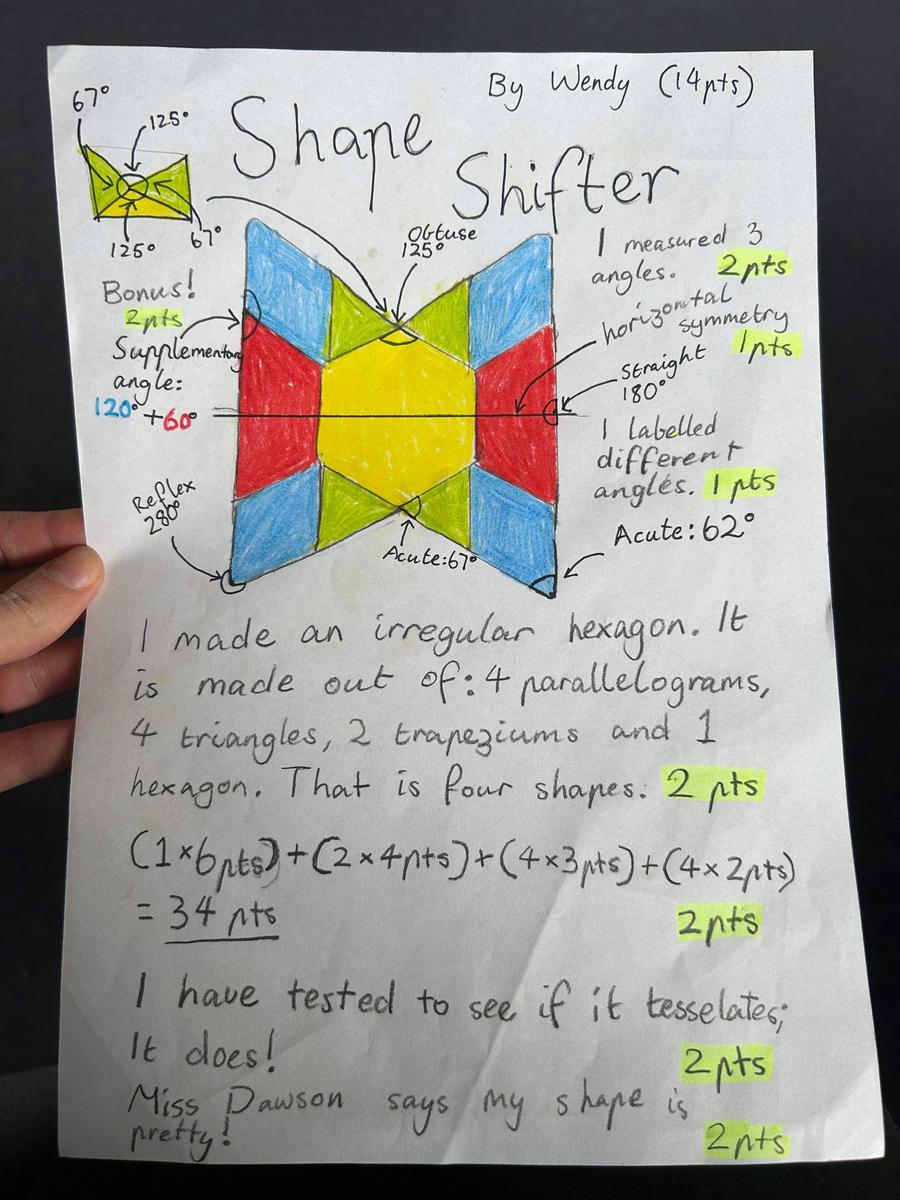 By Wendy (14pts)
Shape
Shifter
67°
125°
125°
67°
Obtuse
125°
I measured 3
angles. 2pts
Bonus!
2pts
Supplementary
angle:
120° + 60°
horizontal
symmetry
1pts
Straight
180°
I labelled
different
angles. 1 pts
Reflex
280°
Acute:67°
Acute:62°
I made an irregular hexagon. It
is made out of: 4 parallelograms,
4 triangles, 2 trapeziums and 1
hexagon. That is four shapes. 2 pts
(1×6pts)+(2×4pts)+(4×3pts)+(4×2pts)
= 34 pts 2pts
I have tested to see if it tesselates;
It does! 2pts
Miss Dawson says my shape is
pretty! 2pts